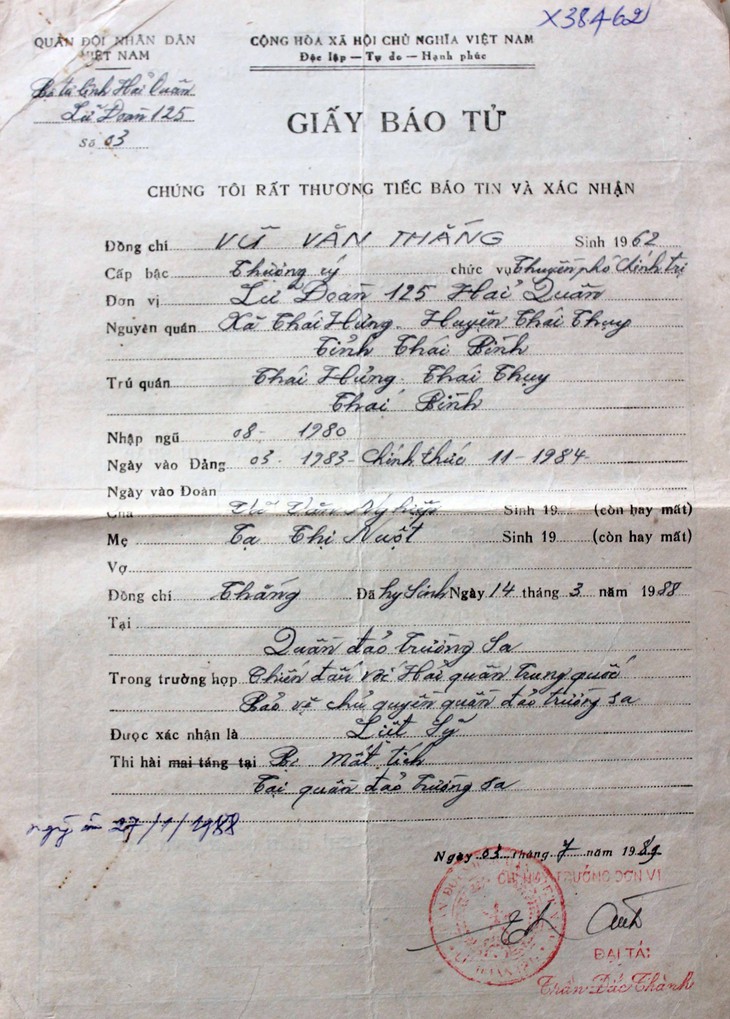 X38462
QUÂN ĐỘI NHÂN DÂN
VIỆT NAM
Bộ tư lệnh Hải Quân
Lữ Đoàn 125
Số 03
CỘNG HÒA XÃ HỘI CHỦ NGHĨA VIỆT NAM
Độc lập — Tự do — Hạnh phúc
GIẤY BÁO TỬ
CHÚNG TÔI RẤT THƯƠNG TIẾC BÁO TIN VÀ XÁC NHẬN
Đồng chí VŨ VĂN THẮNG Sinh 1962
Cấp bậc Thượng úy chức vụ Thuyền phó Chính trị
Đơn vị Lữ Đoàn 125 Hải Quân
Nguyên quán Xã Thái Hưng. Huyện Thái Thụy
Tỉnh Thái Bình
Trú quán Thái Hưng. Thái Thụy
Thái Bình
Nhập ngũ 08 - 1980
Ngày vào Đảng 03. 1983 - Chính thức 11 - 1984
Ngày vào Đoàn
Cha Vũ Văn Sinh 19 (còn hay mất)
Mẹ Tạ Thị Nuột Sinh 19 (còn hay mất)
Vợ
Đồng chí Thắng Đã hy sinh Ngày 14 tháng 3 năm 1988
Tại
Quần đảo trường Sa
Trong trường hợp Chiến đấu với Hải quân trung quốc
Bảo vệ chủ quyền quần đảo trường sa
Được xác nhận là Liệt Sỹ
Thi hài mai táng tại Bị mất tích
Tại quần đảo trường sa
27/1/1988
Ngày 03 tháng 7 năm 1989
CHỈ HUY TRƯỞNG ĐƠN VỊ
ĐẠI TÁ:
Trần Đắc Thành